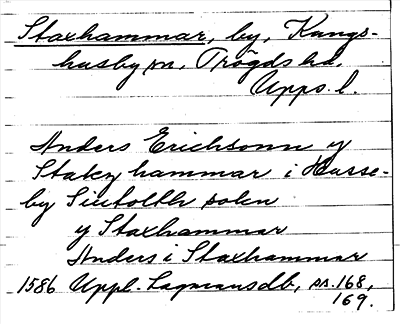 Staxhammar, by, Kungs-
husby sn, Trögds hd,
Upps. l.
Anders Erichsonn y
Stakz hammar i Husse-
by Siutolth sokn
y Staxhammar
Anders i Staxhammar
1586 Uppl. Lagmansdb, sn. 168,
169.